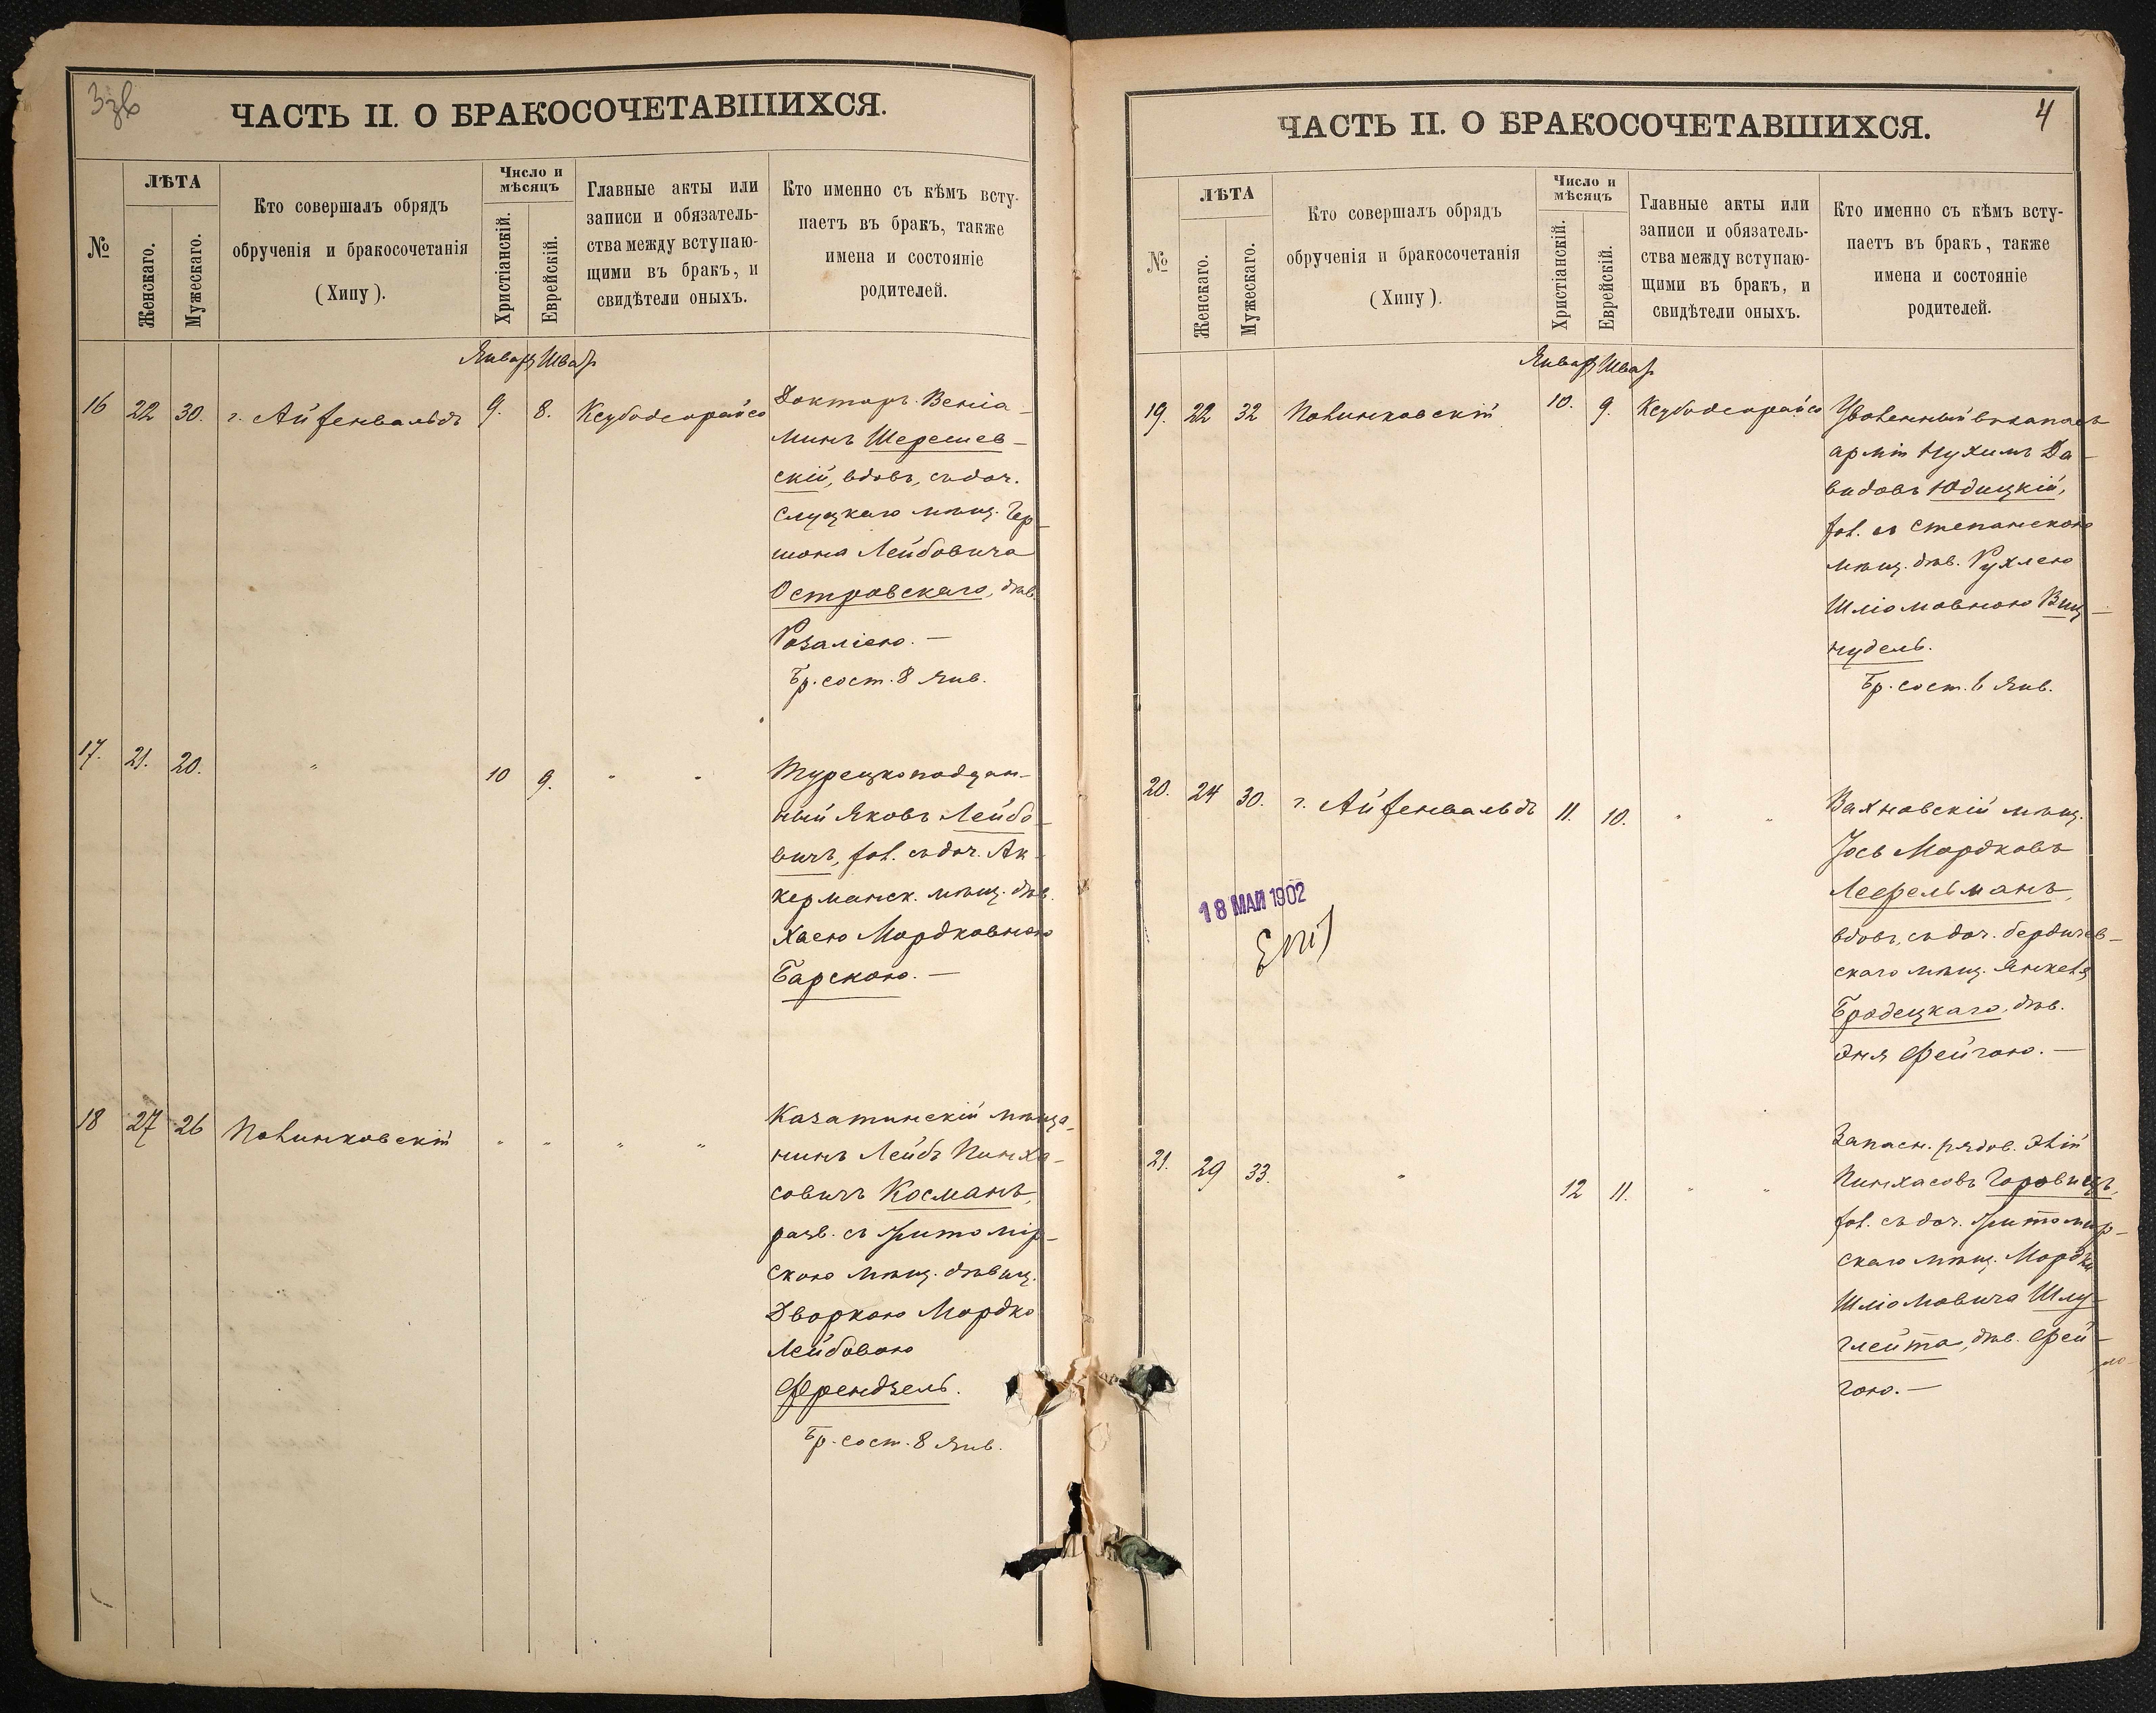 ЧАСТЬ II. О БРАКОСОЧЕТАВШИХСЯ.
№
ЛѢТА
Женскаго.
Мужескаго.
Кто совершалъ обрядъ
обрученія и бракосочетанія
(Хипу).
Число и
мѣсяцъ
Христіанскій.
Еврейскій.
Главные акты или
записи и обязатель-
ства между вступаю-
щими въ бракъ, и
свидѣтели оныхъ.
Кто именно съ кѣмъ всту-
паетъ въ бракъ, также
имена и состояніе
родителей.
Январ Шват
16 22 30. г. Айзенвальдъ 9. 8. Ксубодеорайсо
Докторъ Веніа-
минъ Шерешев-
скій, вдовъ, съ доч.
Слуцкаго мѣщ. Гер-
шона Лейбовича
Островскаго, дѣв.
Розаліею. —
Бр. сост. 8 Янв.
17. 21. 20. " 10 9. " "
Турецкоподдан-
ный Яковъ Лейбо-
вичъ, хол. съ доч. Ак-
керманск. мѣщ. дѣв.
Хаею Мордковною
Барскою. —
18 27 26 Полинковскій " " " "
Казатинскій мѣща-
нинъ Лейбъ Пинха-
совичъ Косманъ,
разв. съ Житомір-
скою мѣщ. дѣвиц.
Дворкою Мордко
Лейбовою
Френдзель.
Бр. сост. 8 Янв.
ЧАСТЬ II. О БРАКОСОЧЕТАВШИХСЯ.
4
№
ЛѢТА
Женскаго.
Мужескаго.
Кто совершалъ обрядъ
обрученія и бракосочетанія
(Хипу).
Число и
мѣсяцъ
Христіанскій.
Еврейскій.
Главные акты или
записи и обязатель-
ства между вступаю-
щими въ бракъ, и
свидѣтели оныхъ.
Кто именно съ кѣмъ всту-
паетъ въ бракъ, также
имена и состояніе
родителей.
Январ Шват
19. 22 32 Полинковскій 10. 9. Ксубодеорайсо
Уволенный въ запасъ
арміи Нухимъ Да-
видовъ Юдицкій,
хол. съ Степанскою
мѣщ. дѣв. Рухлею
Шліомовною Виц-
нудель.
Бр. сост. 6 Янв.
20. 24 30. г. Айзенвальдъ 11. 10. " "
Вахновскій мѣщ.
Іось Мордковъ
Леерельманъ,
вдовъ, съ доч. бердичев-
скаго мѣщ. Янкеля
Бродецкаго, дѣв.
Эня Фейгою. —
18 МАЙ 1902
21. 29 33. " 12 11. " "
Запасн. рядов. Элій
Пинхасовъ Горовицъ,
хол. съ доч. Житомир-
скаго мѣщ. Мордка
Шліомовича Шлу-
глейта, дѣв. Фей-
гою. —